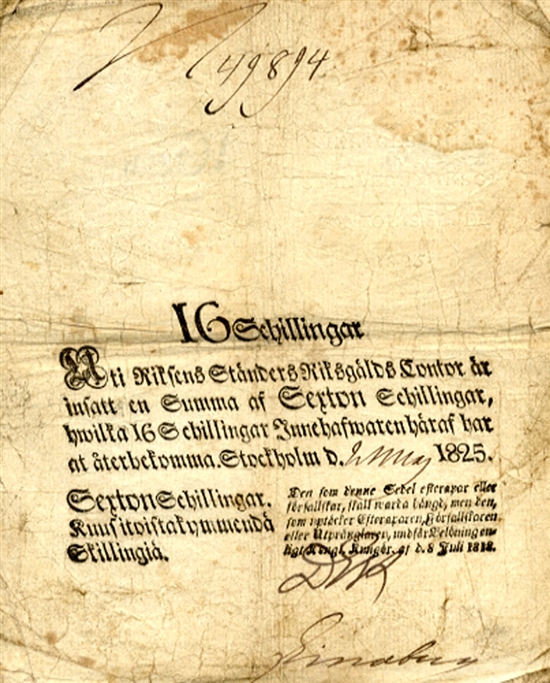 49894
16 Schillingar
Uti Riksens Ständers Riksgälds Contor är
insatt en Summa af Sexton Schillingar,
hwilka 16 Schillingar Innehafwaren häraf har
at återbekomma. Stockholm d. 2 May 1825.
Sexton Schillingar.
Kuusitoistakymmendä
Skillingiä.
Den som denne Sedel efterapar eller
förfalskar, skall warda hängd, men den,
som uptäcker Efteraparen, Förfalskaren
eller Utprånglaren, undfår Belöning en-
ligt Kongl. Kungör. af d. 8 Juli 1818.